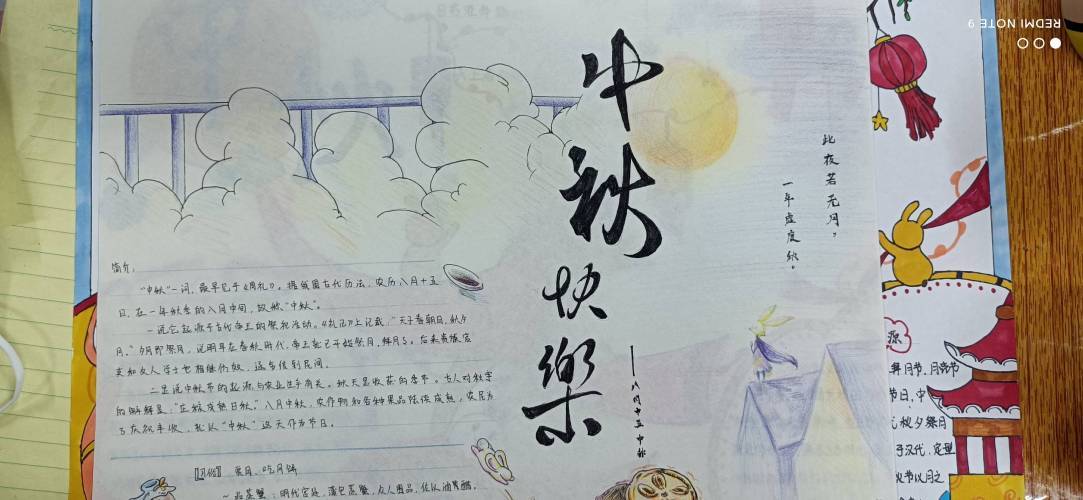 中秋快樂
——八月十五中秋
此夜若无月，
一年虚度秋。
简介：
"中秋"一词，最早见于《周礼》。据我国古代历法，农历八月十五
日，在一年秋季的八月中旬，故称"中秋"。
一说它起源于古代帝王的祭祀活动。《礼记》上记载："天子春朝日，秋夕
月。"夕月即祭月，说明早在春秋时代，帝王就已开始祭月、拜月了。后来贵族官
吏和文人学士也相继仿效，逐步传到民间。
二是说中秋节的起源与农业生产有关。秋天是收获的季节。古人对秋字
的解释是："庄稼成熟曰秋。"八月中秋，农作物和各种果品陆续成熟，农民为
了庆祝丰收，就以"中秋"这天作为节日。
【习俗】 赏月、吃月饼
源
拜月节、月亮节
节日，中
秋夕祭月
于汉代，定型
秋节以月之
REDMI NOTE 9